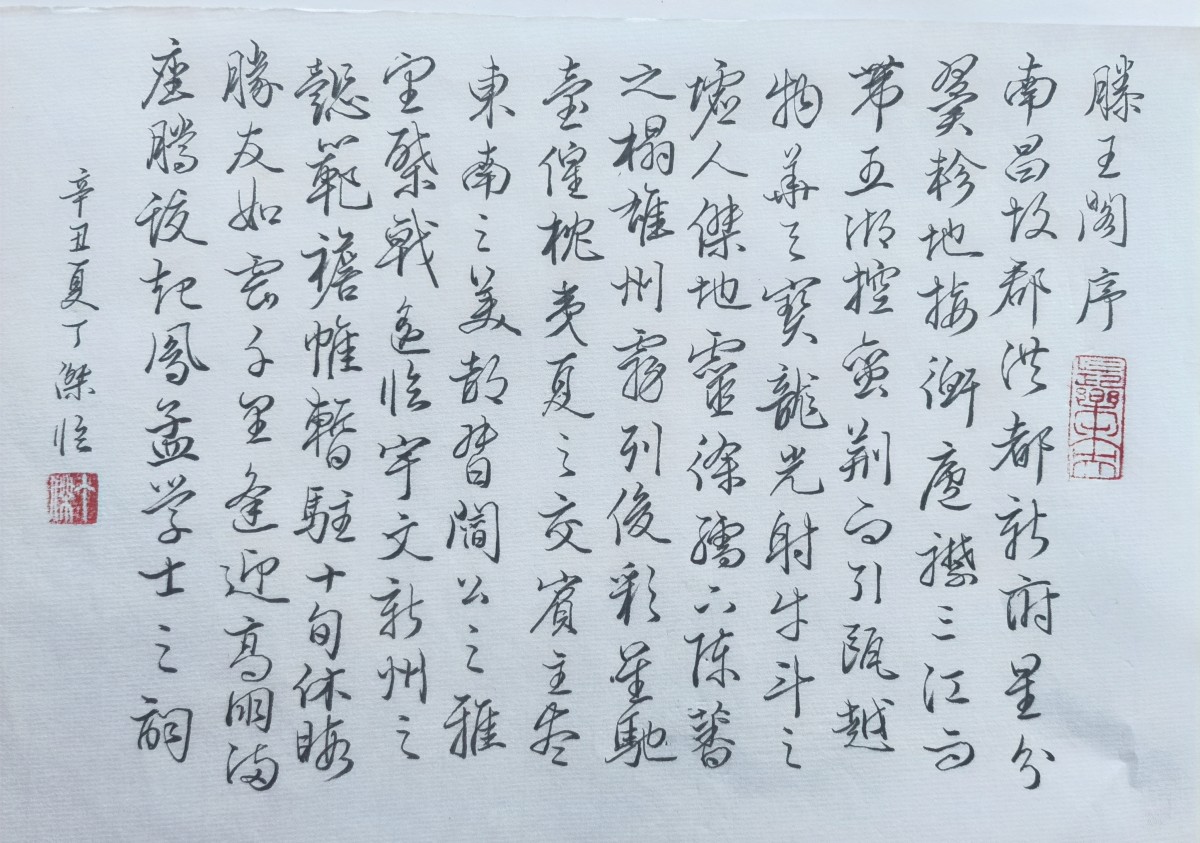 滕王閣序
南昌故郡洪都新府星分
翼軫地接衡廬襟三江而
帶五湖控蠻荊而引甌越
物華天寶龍光射牛斗之
墟人傑地靈徐孺下陳蕃
之榻雄州霧列俊彩星馳
臺隍枕夷夏之交賓主尽
東南之美都督閻公之雅
望棨戟遙臨宇文新州之
懿範襜帷暫駐十旬休暇
勝友如雲千里逢迎高朋滿
座騰蛟起鳳孟学士之詞
辛丑夏丁傑臨